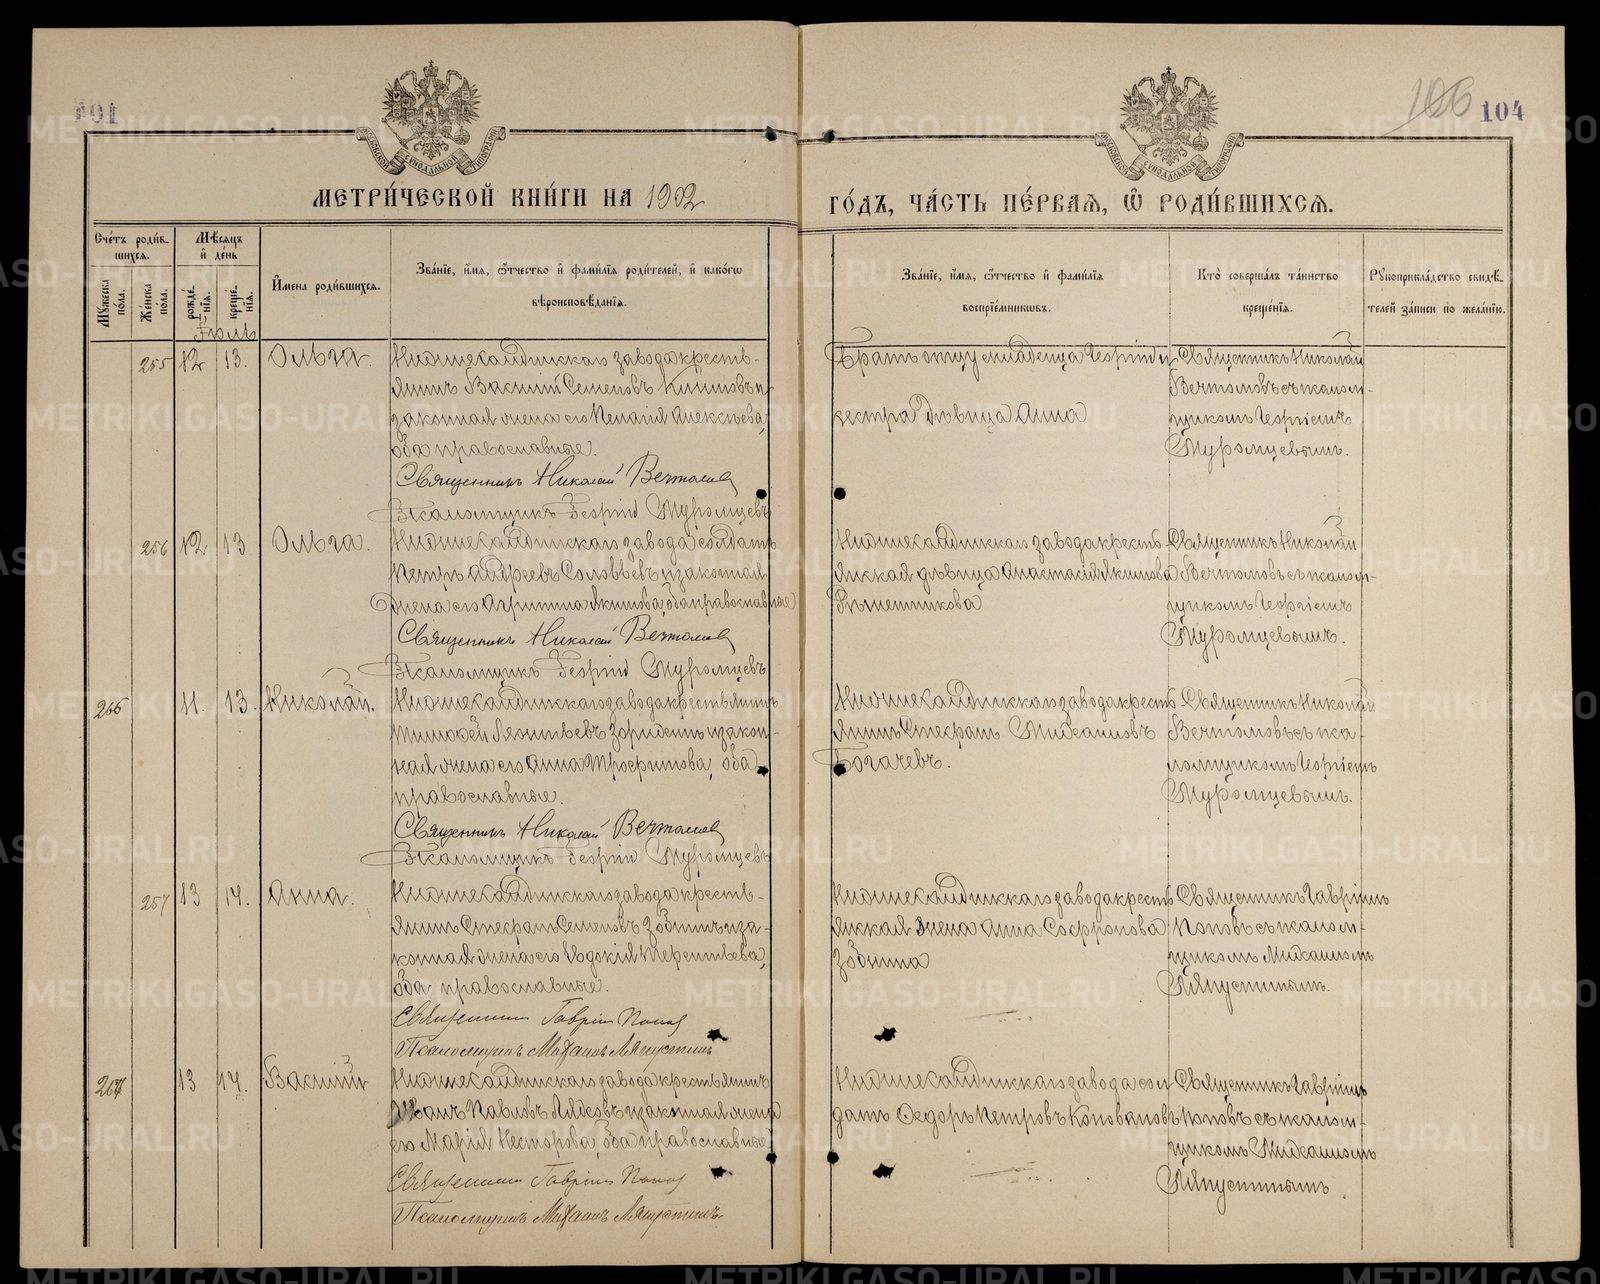 101
106
104
МЕТРИ́ЧЕСКОЙ КНИ́ГИ НА 1902
ГО́ДЪ, ЧА́СТЬ ПЕ́РВАЯ, Ѿ РОДИ́ВШИХСЯ.
Сче́тъ роди́в-
шихся.
Мѣ́сяцъ
и҆ де́нь
Му́жеска по́ла.
Же́нска по́ла.
рожде́нїя.
креще́нїя.
И҆мена роди́вшихся.
Зва́нїе, и҆́мя, ѻ҆́тчество и҆ фами́лїя роди́телей, и҆ како́гѡ
вѣроисповѣ́данїя.
Зва́нїе, и҆́мя, ѻ҆́тчество и҆ фами́лїя
воспрїе́мникѡвъ.
Кто̀ соверша́лъ та́инство
креще́нїя.
Рꙋкоприкла́дство свидѣ́-
телей за́писи по жела́нїю.
Іюль
255 12 13. Ольга.
Нижнесалдинскаго завода кресть-
янинъ Василий Семеновъ и
законная жена его Пелагія Алексѣева,
оба православные.
Священникъ Николай
Псаломщикъ Георгій Муромцевъ
Братъ отцу младенца Георгій и
сестра дѣвица Анна
Священникъ Николай
съ псалом-
щикомъ Георгіемъ
Муромцевымъ.
256 12 13 Ольга.
Нижнесалдинскаго завода солдатъ
Петръ Андреевъ Соловьевъ и законная
жена его Агрипина Якимова, оба православные
Священникъ Николай
Псаломщикъ Георгій Муромцевъ
Нижнесалдинскаго завода кресть-
янская дѣвица Анастасія Якимова
Рѣшетникова
Священникъ Николай
съ псалом-
щикомъ Георгіемъ
Муромцевымъ.
266 11. 13. Николай.
Нижнесалдинскаго завода крестьянинъ
Тимофей Леонтьевъ и закон-
ная жена его Анна Трофимова, оба
православные.
Священникъ Николай
Псаломщикъ Георгій Муромцевъ
Нижнесалдинскаго завода кресть-
янинъ Стефанъ Михаиловъ
Богачевъ.
Священникъ Николай
съ пса-
ломщикомъ Георгіемъ
Муромцевымъ.
257 13 14. Анна.
Нижнесалдинскаго завода кресть-
янинъ Стефанъ Семеновъ Зобнинъ и за-
конная жена его Евдокія Терентьева,
оба православные.
Священникъ Гавріилъ Поповъ
Псаломщикъ Михаилъ Ляпустинъ
Нижнесалдинскаго завода кресть-
янская жена Анна Софронова
Зобнина
Священникъ Гавріилъ
Поповъ съ псалом-
щикомъ Михаиломъ
Ляпустинымъ.
267 13 14. Василій
Нижнесалдинскаго завода крестьянинъ
Иванъ Павловъ и законная жена
его Марія Несторова, оба православные
Священникъ Гавріилъ Поповъ
Псаломщикъ Михаилъ Ляпустинъ
Нижнесалдинскаго завода сол-
датъ Ѳедоръ Петровъ Коноваловъ
Священникъ Гавріилъ
Поповъ съ псалом-
щикомъ Михаиломъ
Ляпустинымъ.
METRIKI.GASO-URAL.RU